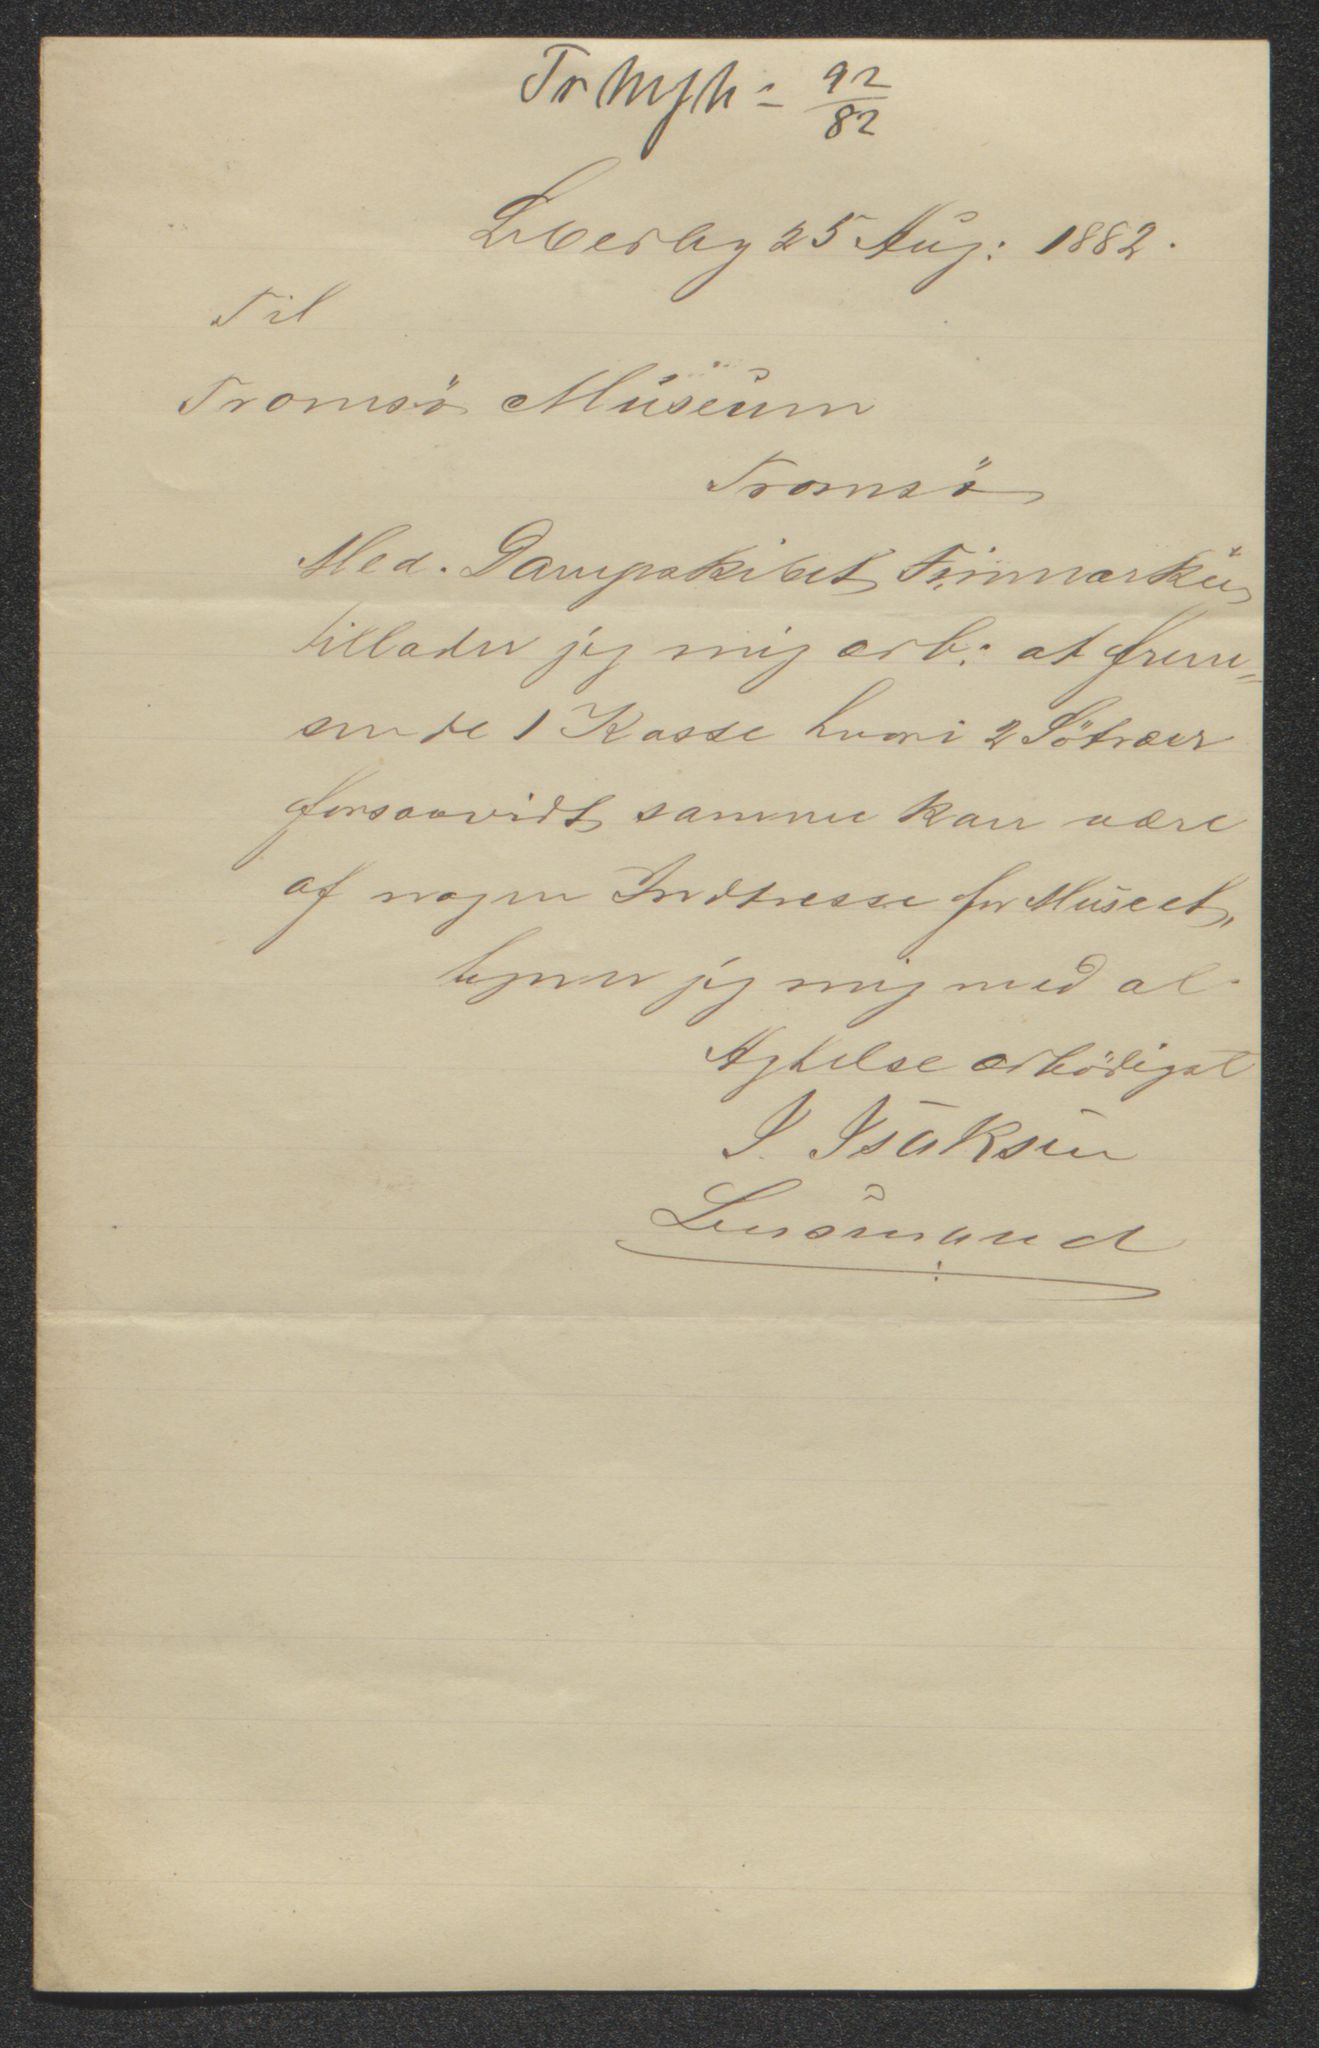 92
82
Lebesby 25 Aug: 1882.
Til
Tromsö Museum
Tromsö
Med. Dampskibet Finmarken
tillader jeg mig ærb: at frem„
sende 1 Kasse hvori 2 Søtræer
forsaavidt samme kan være
af nogen Indtresse for Museet,
tegner jeg mig med al
Agtelse ærbödigst
I. Isaksen
Lensmand